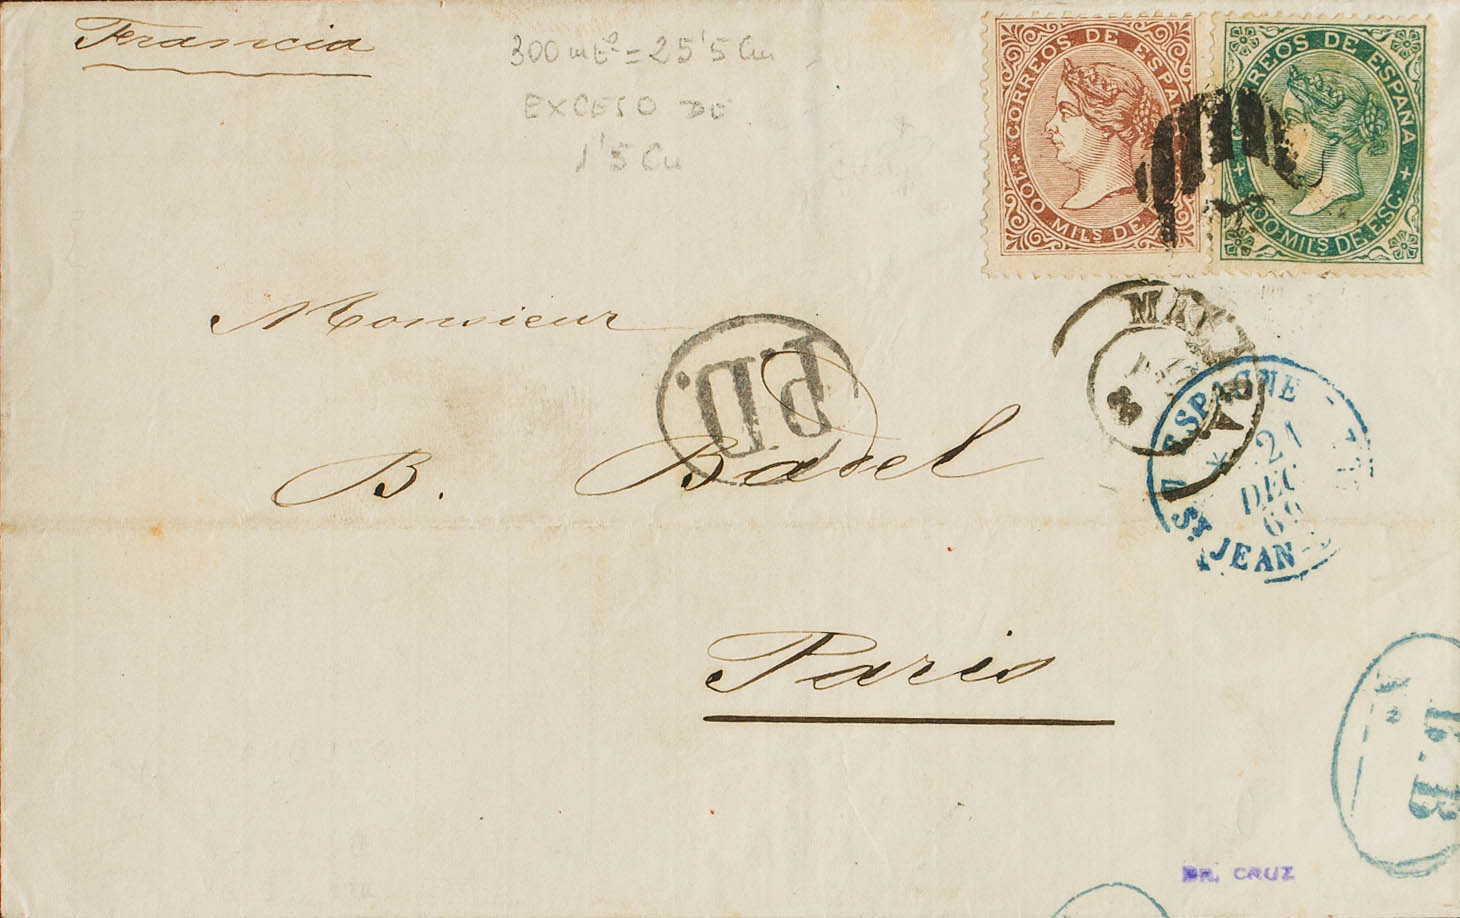 Francia
300 mls = 25'5 Cu
EXCESO DE
1'5 Cu
CORREOS DE ESPAÑA
100 MILS DE
CORREOS DE ESPAÑA
200 MILS DE ESC.
Monsieur
P.D.
B. Badel
ESPAGNE
21
DEC
69
ST. JEAN
Paris
B
DR. CRUZ